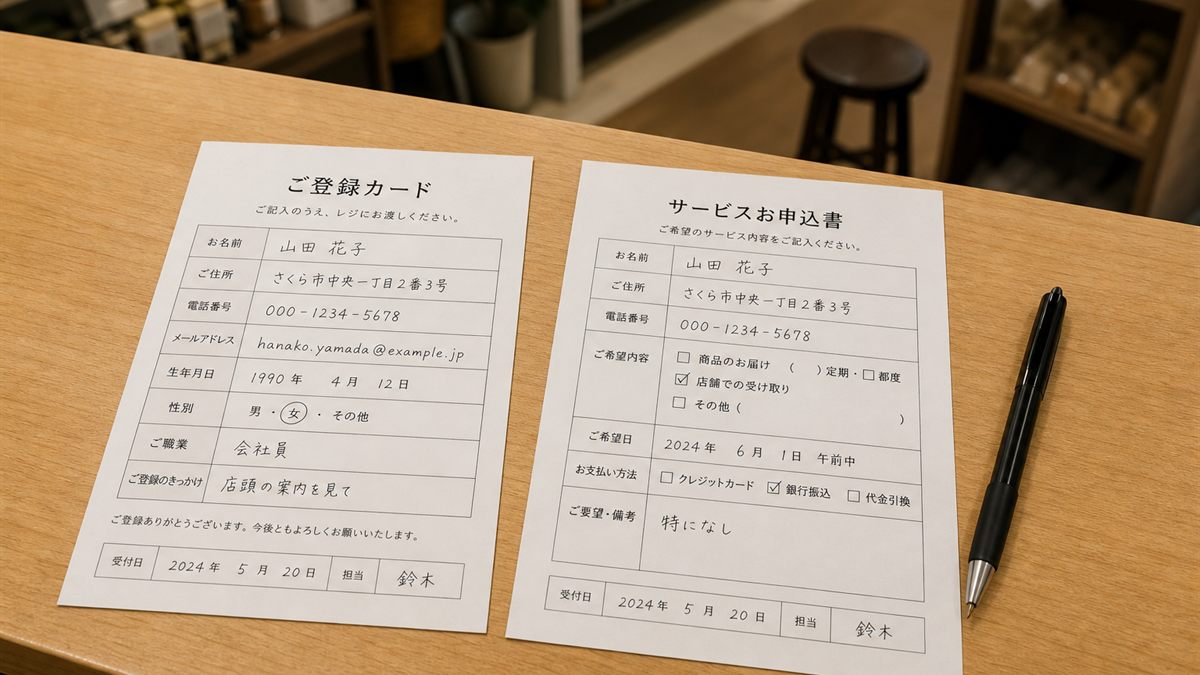 ご登録カード
ご記入のうえ、レジにお渡しください。
お名前 山田 花子
ご住所 さくら市中央一丁目2番3号
電話番号 000-1234-5678
メールアドレス hanako.yamada@example.jp
生年月日 1990年 4月 12日
性別 男・女・その他
ご職業 会社員
ご登録のきっかけ 店頭の案内を見て
ご登録ありがとうございます。今後ともよろしくお願いいたします。
受付日 2024年 5月 20日 担当 鈴木
サービスお申込書
ご希望のサービス内容をご記入ください。
お名前 山田 花子
ご住所 さくら市中央一丁目2番3号
電話番号 000-1234-5678
ご希望内容 □ 商品のお届け ( )定期・□都度
☑ 店舗での受け取り
□ その他 ( )
ご希望日 2024年 6月 1日 午前中
お支払い方法 □ クレジットカード ☑ 銀行振込 □ 代金引換
ご要望・備考 特になし
受付日 2024年 5月 20日 担当 鈴木